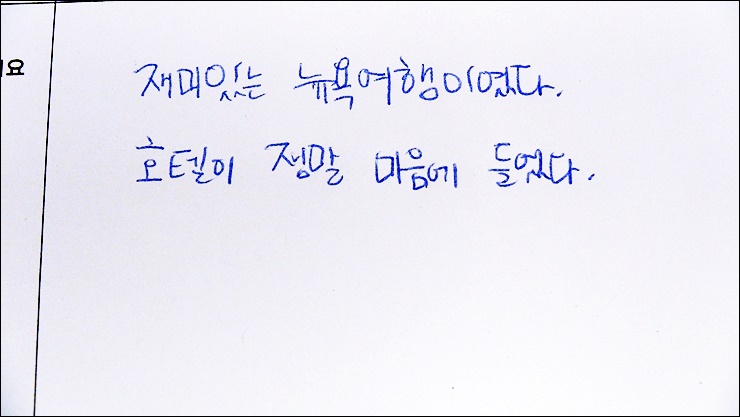 요
재미있는 뉴욕여행이었다.
호텔이 정말 마음에 들었다.